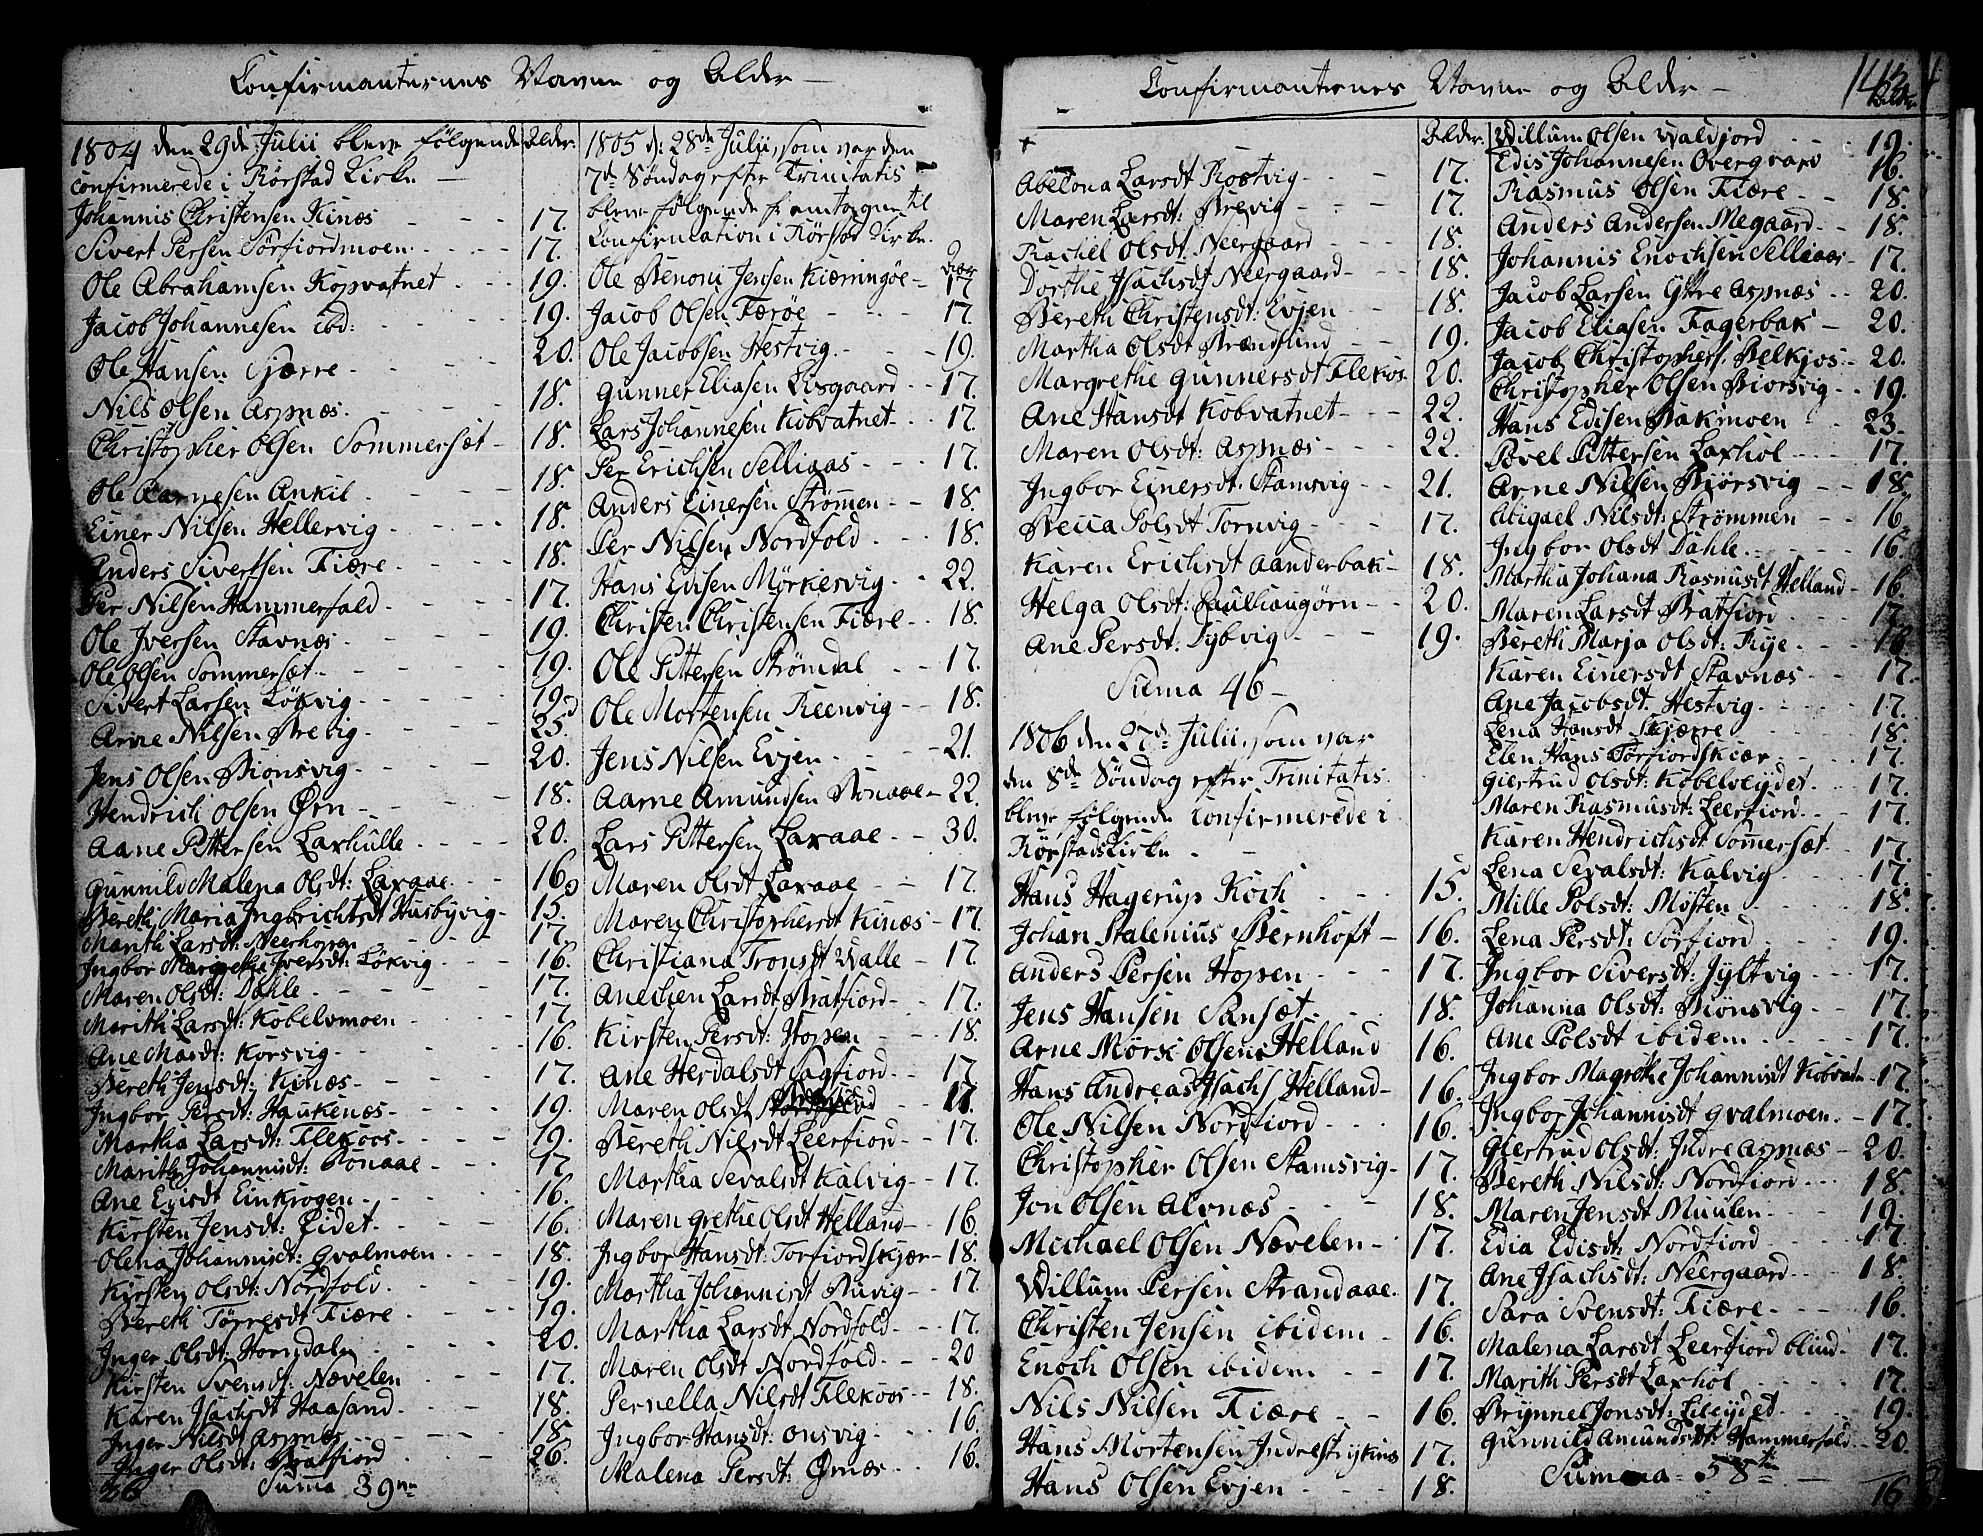 Confirmanternes Navne og Alder
1804 den 29de Julii bleve følgende Alder
confirmerede i Rørstad Kirke
Johannis Christensen Kinæs 17.
Sivert Persen Sørfiordmoen 17.
Ole Abrahamsen Kopvatnet 19.
Jacob Johannesen ibd: 19.
Ole Hansen Sjærre 20.
Nils Olsen Aspnæs 18.
Christopher Olsen Sommersæt 18.
Ole Aarnesen Ankil 18.
Einer Nilsen Hellervig 18.
Anders Sivertsen Fiære 18.
Per Nilsen Hammerfald 17.
Ole Iversen Stavnæs 19.
Ole Olsen Sommersæt 19.
Sivert Larsen Løkvig 19.
Arne Nilsen Brevig 25.
Jens Olsen Bionsvig 20.
Hendrich Olsen Ørn 18.
Aane Pittersen Laxhulle 20.
Gunnild Malena Olsdt: Laxaae 16
Bereth Maria Ingbrichtsdt Husbyvig 15.
Marith Larsdt: Neerhopen 17.
Ingbor Margrethe Iversdt: Løkvig 16.
Maren Olsdt: Dahle 17.
Marith Larsdt: Kobelvmoen 17.
Ane Marsdt: Korsvig 16.
Bereth Jensdt: Kinæs 17.
Ingbor Persdt: Haukenæs 19.
Martha Larsdt: Flekoos 19.
Marith Johannisdt: Bonaae 17.
Ane Edisdt Einkrogen 16.
Kirsten Jensdt: Eidet 16.
Olena Johannisdt: Gvalmoen 18.
Kirsten Olsdt: Nordfold 19.
Bereth Tørresdt Fiære 19.
Inger Olsdt: Horndaln 20.
Kirsten Svensdt: Nævelen 17.
Karen Isachsdt Haasand 18.
Inger Nilsdt Aspnæs 18.
Inger Olsdt: Bratfiord 26.
Suma 39
1805 d: 28de Julii, som var den
7de Søndag efter Trinitatis
bleve følgende fremtagne til
Confirmation i Rørstad Kirke.
Ole Benoni Jensen Kiærringøe 17
Jacob Olsen Færøe 17
Ole Jacobsen Hestvig 19.
Gunner Eliasen Lisgaard 17.
Lars Johannesen Kobvatnet 17.
Per Erichsen Selliaas 17.
Anders Einersen Strømmen 18.
Per Nilsen Nordfold 18.
Hans Edisen Mørkesvig 22.
Christen Christensen Fiære 18.
Ole Pittersen Strømdal 17.
Ole Mortensen Reenvig 18.
Jens Nilsen Evjen 21.
Aarne Amundsen Bonaae 22.
Lars Pittersen Laxaae 30.
Maren Olsdt Laxaae 17.
Maren Christophersdt Kinæs 17.
Christiana Tronsdt Walle 17.
Anechen Larsdt Bratfiord 17.
Kirsten Persdt: Hopen 18.
Ane Herdalsdt Sagfiord 17.
Maren Olsdt 17.
Bereth Nilsdt Leerfiord 17.
Martha Sevalsdt Kalvig 17.
Maren Grethe Olsdt Helland 16
Ingbor Hansdt: Torfiordskjær 18.
Martha Johannisdt Buvig 17
Martha Larsdt Nordfold 17.
Maren Olsdt Nordfold 20
Pernella Nilsdt Flekoos 18.
Ingbor Hansdt: Onsvig 16.
Malena Persdt: Ørnæs 16.
Confirmanternes Navne og Alder
Alder
Abelona Larsdt Rostvig 17.
Maren Larsdt: Brevig 17.
Rachel Olsdt. Neergaard 18.
Dorthe Isachsdt Neergaard 18.
Bereth Christensdt: Evjen 18.
Martha Olsdt Brændlund 19.
Margrethe Gunnersdt Flekos 20.
Ane Hansdt Kobvatnet 22.
Maren Olsdt: Aspnæs 22.
Ingbor Einersdt: Stamsvig 21.
Becca Polsdt Tornvig 17.
Karen Erichsdt Aanderbak 18.
Helga Olsdt: Paulhaugørn 20.
Ane Persdt: Sybvig 19.
Suma 46
1806 den 27de Julii, som var
den 8de Søndag efter Trinitatis
bleve følgende Confirmerede i
Rørstads Kirke
Hans Hagerup Koch 15.
Johan Stalenius Bernhoft 16.
Anders Persen Hopen 17.
Jens Hansen Sansæt 18.
Arne Mørse Olsen Helland 16.
Hans Andreas Isachs Helland 16.
Ole Nilsen Nordfiord 16.
Christopher Olsen Stamsvig 17.
Jon Olsen Alvnæs 18.
Michael Olsen Nævelen 17.
Willum Persen Strandaae 17.
Christen Jensen ibidem 16.
Enoch Olsen ibidem 17.
Nils Nilsen Fiære 16.
Hans Mortensen 17.
Hans Olsen Evjen 18.
Willum Olsen Waldjord 19.
Edis Johannesen Overgvard 16.
Rasmus Olsen Fiære 18.
Anders Andersen Megaard 18.
Johannis Enochsen Selliaas 17.
Jacob Larsen Yttre Aspnæs 20.
Jacob Eliasen Fagerbak 20.
Jacob Christophers. Belkjos 20.
Christopher Olsen Biorsvig 19.
Hans Edisen Bakmoen 23.
Povel Pittersen Laxhol 17.
Arne Nilsen Biørsvig 18.
Abigael Nilsdt: Strømmen 16.
Ingbor Olsdt Dahle 16.
Martha Johana Rasmusdt Helland 16.
Maren Larsdt Bratfiord 17.
Bereth Marja Olsdt: Rije 16.
Karen Einersdt Stavnæs 17.
Ane Jacobsdt. Hestvig 17.
Lena Hansdt Skjærre 18.
Elen Hans Torfiordskiær 17.
Giertrud Olsdt: Kobelveydet 17.
Maren Rasmusdt: Leerfiord 17.
Karen Hendrichsdt Somersæt 17
Lena Sevalsdt: Kalvig 17.
Mille Polsdt: Møsten 18.
Lena Persdt: Sørfiord 19.
Ingbor Siversdt: Jyltvig 17.
Johanna Olsdt: Biønsvig 17.
Ane Polsdt ibidem 17.
Ingbor Magrethe Johannisdt Kobvatn 17.
Ingbor Johannisdt Gvalmoen 17.
Giertrud Olsdt: Indre Aspnæs 20.
Bereth Nilsdt: Nordfiord 18.
Maren Jensdt Muulen 19.
Edia Edisdt: Nordfiord 17.
Ane Isachsdt: Neergaard 18.
Sara Svensdt: Fiære 16.
Malena Larsdt Leerfiord blind 17.
Marith Persdt Laxhol 17.
Brynnel Jonsdt: Eleydet 19.
Gunnild Amundsdt: Hammerfald 20.
Summa 58
16